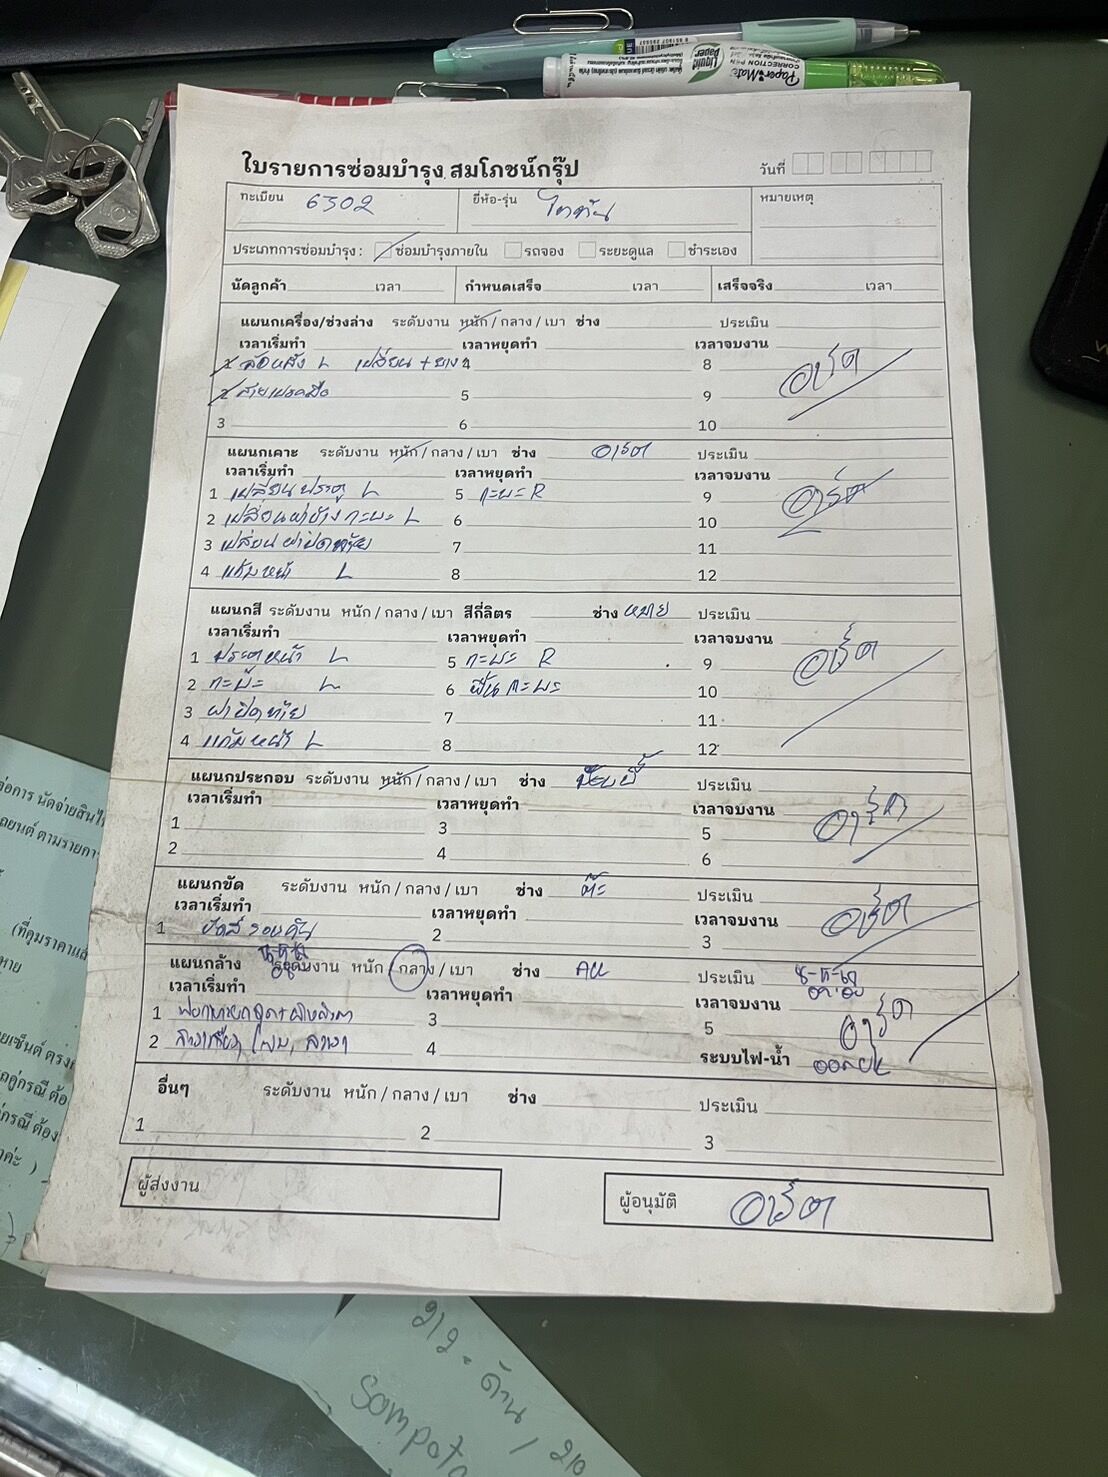 Liquid Paper
CORRECTION PEN
Paper Mate
ใบรายการซ่อมบำรุง สมโภชน์กรุ๊ป
วันที่
ทะเบียน 6302 ยี่ห้อ-รุ่น ไททัน หมายเหตุ
ประเภทการซ่อมบำรุง : ซ่อมบำรุงภายใน รถจอง ระยะดูแล ชำระเอง
นัดลูกค้า เวลา กำหนดเสร็จ เวลา เสร็จจริง เวลา
แผนกเครื่อง/ช่วงล่าง ระดับงาน หนัก / กลาง / เบา ช่าง ประเมิน
เวลาเริ่มทำ เวลาหยุดทำ เวลาจบงาน
1 ล้อหลัง L เปลี่ยน + ยาง 4 8 อาร์ต
2 สายเบรคมือ 5 9
3 6 10
แผนกเคาะ ระดับงาน หนัก / กลาง / เบา ช่าง อาร์ต ประเมิน
เวลาเริ่มทำ เวลาหยุดทำ เวลาจบงาน
1 เปลี่ยนประตู L 5 กะบะ R 9 อาร์ต
2 เปลี่ยนฝาข้างกะบะ L 6 10
3 เปลี่ยนฝาปิดท้าย 7 11
4 แก้มหน้า L 8 12
แผนกสี ระดับงาน หนัก / กลาง / เบา สีกี่ลิตร ช่าง หมาย ประเมิน
เวลาเริ่มทำ เวลาหยุดทำ เวลาจบงาน
1 ประตูหน้า L 5 กะบะ R 9 อาร์ต
2 กะบะ L 6 พื้นกะบะ 10
3 ฝาปิดท้าย 7 11
4 แก้มหน้า L 8 12
แผนกประกอบ ระดับงาน หนัก / กลาง / เบา ช่าง ประเมิน
เวลาเริ่มทำ เวลาหยุดทำ เวลาจบงาน
1 3 5 อาร์ต
2 4 6
แผนกขัด ระดับงาน หนัก / กลาง / เบา ช่าง ต๊ะ ประเมิน
เวลาเริ่มทำ เวลาหยุดทำ เวลาจบงาน อาร์ต
1 ขัดสีรอบคัน 2 3
แผนกล้าง ระดับงาน หนัก / กลาง / เบา ช่าง ประเมิน
เวลาเริ่มทำ เวลาหยุดทำ เวลาจบงาน
1 3 5 อาร์ต
2 4 ระบบไฟ-น้ำ
อื่นๆ ระดับงาน หนัก / กลาง / เบา ช่าง ประเมิน
1 2 3
ผู้ส่งงาน ผู้อนุมัติ อาร์ต
212.